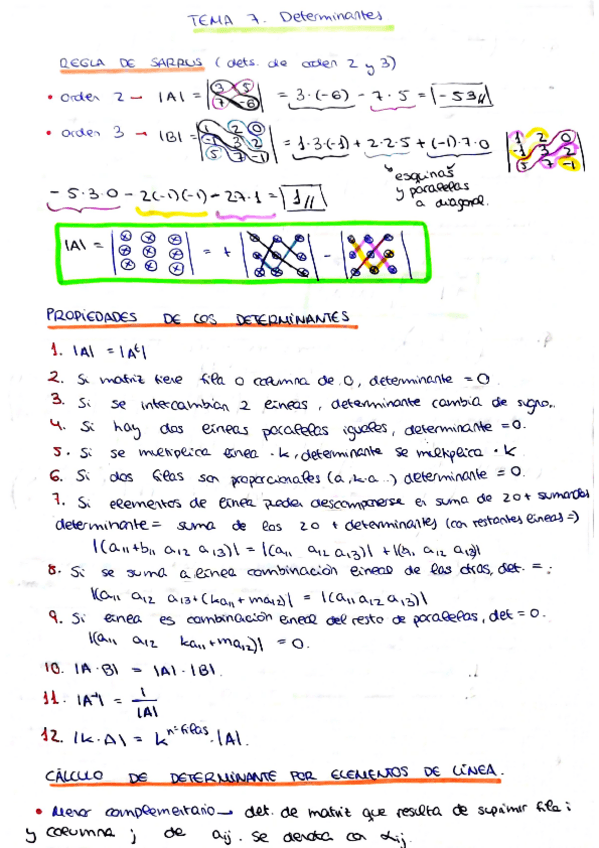 TEMA 7. Determinantes
REGLA DE SARRUS (dets. de orden 2 y 3)
• orden 2 → |A| = |3 5 7 -6| = 3·(-6) - 7·5 = -53//
• orden 3 → |B| = |1 2 0 -1 3 2 5 7 -1| = 1·3·(-1) + 2·2·5 + (-1)·7·0 |1 2 0 -1 3 2 5 7 -1|
esquinas
y paralelas
a diagonal.
- 5·3·0 - 2(-1)(-1) - 2·7·1 = 1//
|A| = | | = + | | - | |
PROPIEDADES DE LOS DETERMINANTES
1. |A| = |Aᵗ|
2. Si matriz tiene fila o columna de 0, determinante = 0
3. Si se intercambian 2 líneas, determinante cambia de signo.
4. Si hay dos líneas paralelas iguales, determinante = 0.
5. Si se multiplica línea · k, determinante se multiplica · k
6. Si dos filas son proporcionales (a, k·a..) determinante = 0.
7. Si elementos de línea pueden descomponerse en suma de 2 o + sumandos
determinante = suma de los 2 o + determinantes (con restantes líneas =)
|(a₁₁+b₁₁ a₁₂ a₁₃)| = |(a₁₁ a₁₂ a₁₃)| + |(b₁ a₁₂ a₁₃)|
8. Si se suma a línea combinación lineal de las otras, det. = :
|(a₁₁ a₁₂ a₁₃+(ka₁₁+ma₁₂)| = |(a₁₁ a₁₂ a₁₃)|
9. Si línea es combinación lineal del resto de paralelas, det = 0.
|(a₁₁ a₁₂ ka₁₁+ma₁₂)| = 0.
10. |A·B| = |A|·|B|.
11. |A⁻¹| = 1/|A|
12. |k·A| = k^(nº filas)·|A|.
CÁLCULO DE DETERMINANTE POR ELEMENTOS DE LÍNEA.
• Menor complementario → det. de matriz que resulta de suprimir fila i
y columna j de aᵢⱼ. Se denota con αᵢⱼ.